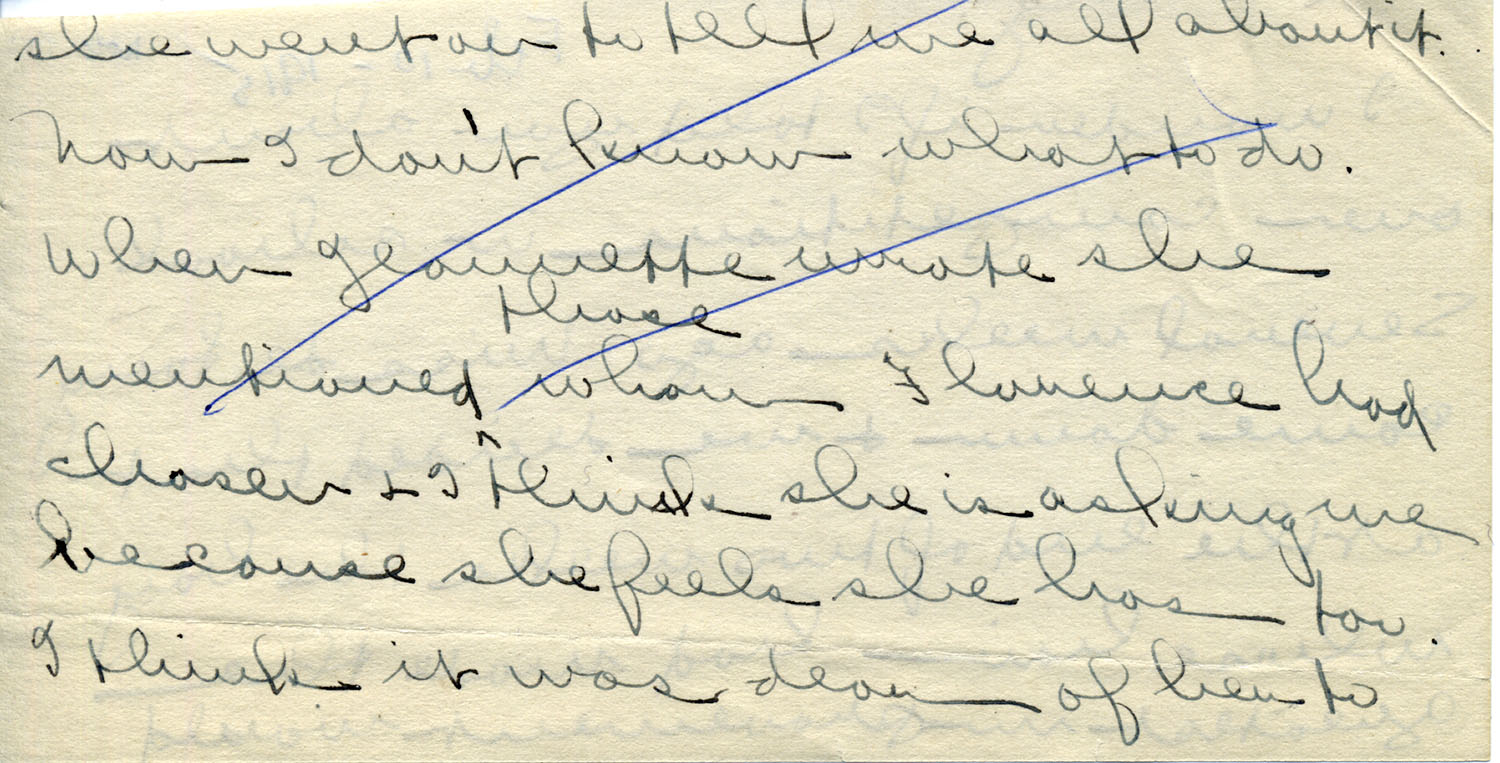 she went on to tell me all about it.
Now I don't know what to do.
When Jeannette wrote she
those
mentioned whom Florence had
chosen & I think she is asking me
because she feels she has too.
I think it was dear of her to